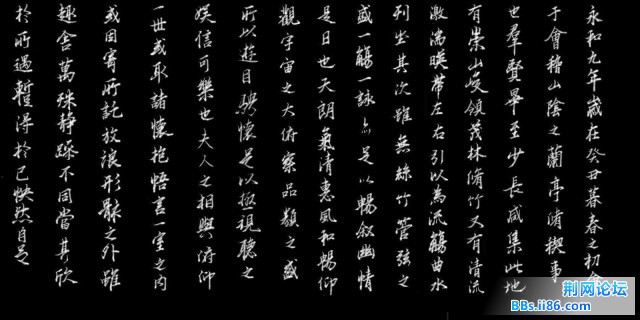 永和九年歲在癸丑暮春之初會
于會稽山陰之蘭亭脩禊事
也羣賢畢至少長咸集此地
有崇山峻領茂林脩竹又有清流
激湍暎帶左右引以為流觴曲水
列坐其次雖無絲竹管弦之
盛一觴一詠亦足以暢叙幽情
是日也天朗氣清惠風和暢仰
觀宇宙之大俯察品類之盛
所以遊目騁懷足以極視聽之
娛信可樂也夫人之相與俯仰
一世或取諸懷抱悟言一室之內
或因寄所託放浪形骸之外雖
趣舍萬殊静躁不同當其欣
於所遇暫得於己怏然自足
荆网论坛
BBs.ii86.com